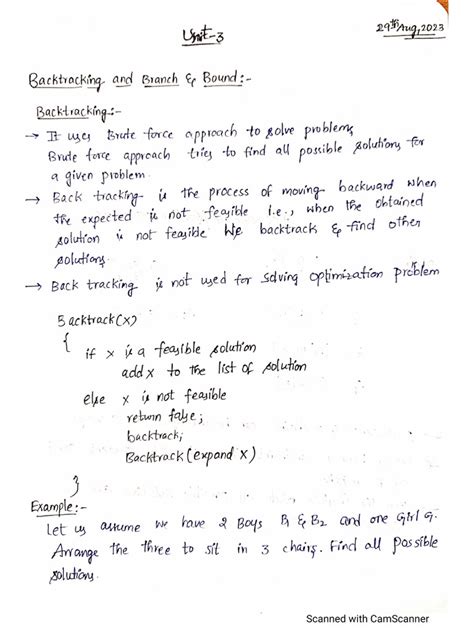 Unit-3
29th Aug, 2023
Backtracking and Branch & Bound:-
Backtracking:-
→ It uses Brute force approach to solve problem,
Brute force approach tries to find all possible solutions for
a given problem.
→ Back tracking is the process of moving backward when
the expected is not feasible i.e., when the obtained
solution is not feasible We backtrack & find other
solutions.
→ Back tracking is not used for solving optimization problem
Backtrack(x)
{
if x is a feasible solution
add x to the list of solution
else x is not feasible
return false;
backtrack;
Backtrack(expand x)
}
Example:-
Let us assume we have 2 Boys B1 & B2 and one Girl G.
Arrange the three to sit in 3 chairs. Find all possible
solutions.
Scanned with CamScanner